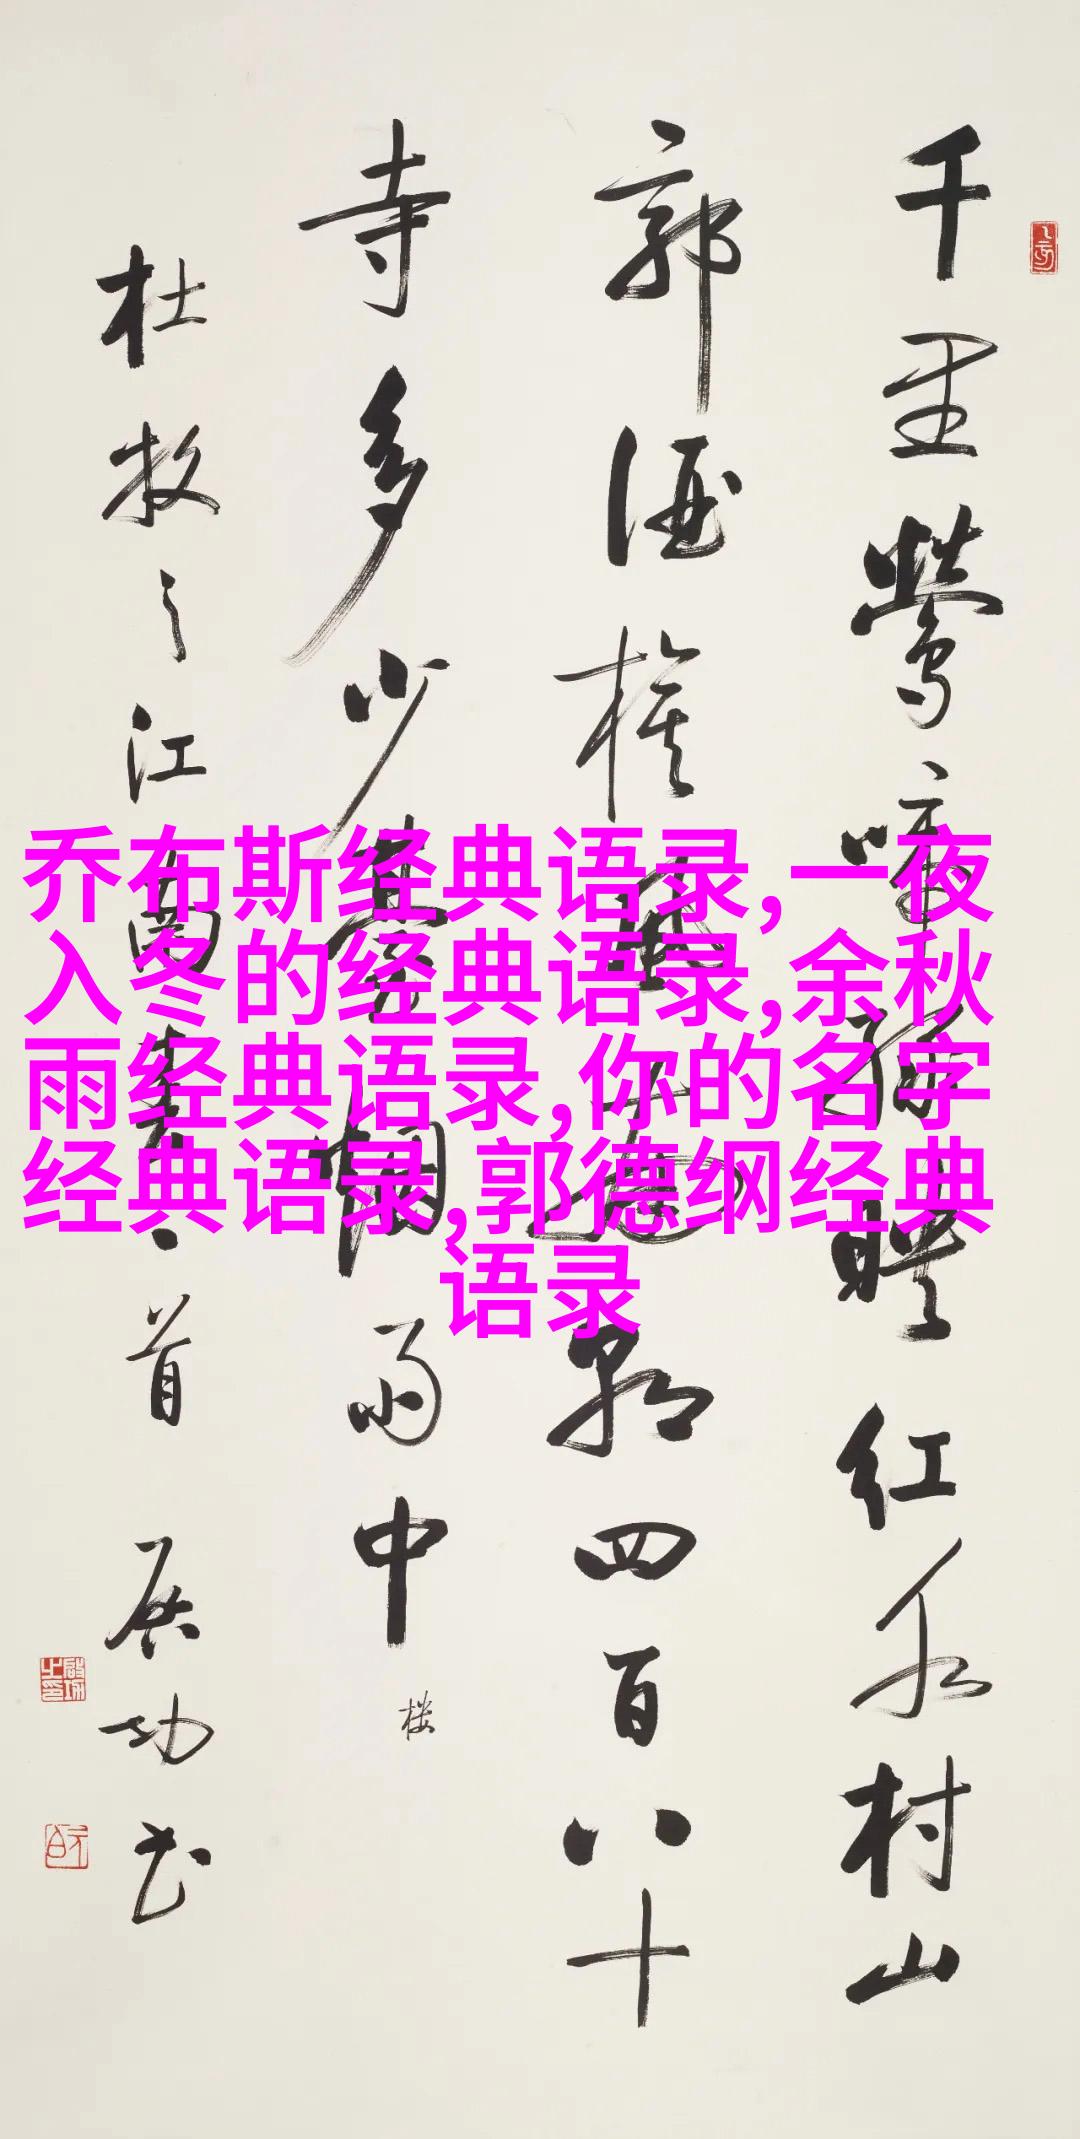 千里莺啼绿映红水村山
郭酒旗风四百八十
寺多少楼台烟雨中
楼
杜牧之江南春一首 启功书
乔布斯经典语录,一夜
入冬的经典语录,余秋
雨经典语录,你的名字
经典语录,郭德纲经典
语录